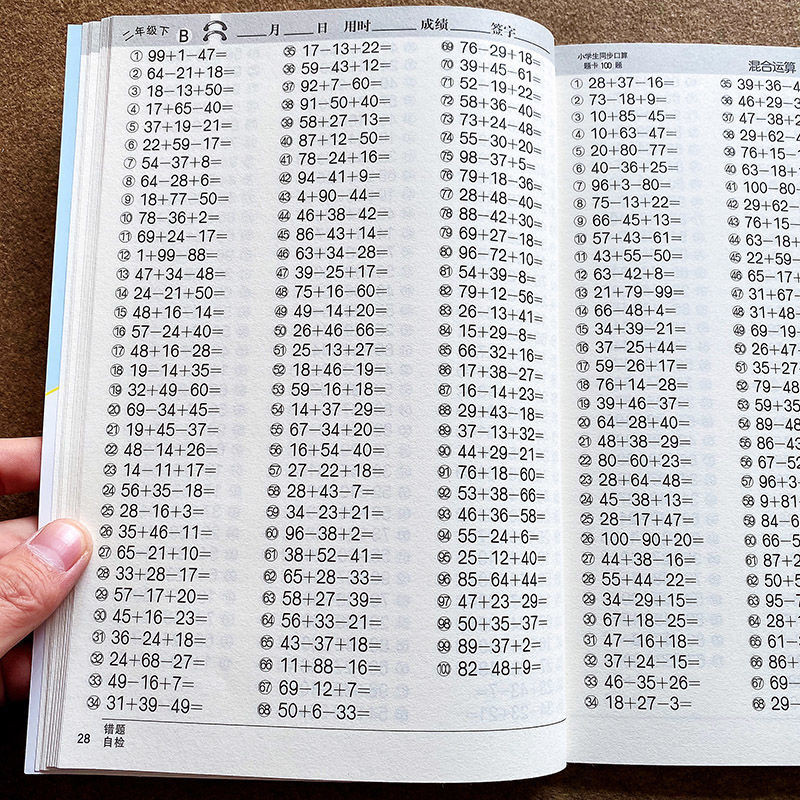 二年级下 B ____月____日 用时____ 成绩____ 签字____
① 99+1-47=
② 64-21+18=
③ 18-13+50=
④ 17+65-40=
⑤ 37+19-21=
⑥ 22+59-17=
⑦ 54-37+8=
⑧ 64-28+6=
⑨ 18+77-50=
⑩ 78-36+2=
⑪ 69+24-17=
⑫ 1+99-88=
⑬ 47+34-48=
⑭ 24-21+50=
⑮ 48+16-14=
⑯ 57-24+40=
⑰ 48+16-28=
⑱ 19-14+35=
⑲ 32+49-60=
⑳ 69-34+45=
㉑ 19+45-37=
㉒ 48-14+26=
㉓ 14-11+17=
㉔ 56+35-18=
㉕ 28-16+3=
㉖ 35+46-11=
㉗ 65-21+10=
㉘ 33+28-17=
㉙ 57-17+20=
㉚ 45+16-23=
㉛ 36-24+18=
㉜ 24+68-27=
㉝ 49-16+7=
㉞ 31+39-49=
㉟ 17-13+22=
㊱ 59-43+12=
㊲ 92+7-60=
㊳ 91-50+40=
㊴ 58+27-13=
㊵ 87+12-50=
㊶ 78-24+16=
㊷ 94-41+9=
㊸ 4+90-44=
㊹ 46+38-42=
㊺ 86-43+14=
㊻ 63+34-28=
㊼ 39-25+17=
㊽ 75+16-60=
㊾ 49-14+20=
㊿ 26+46-66=
51 25-13+27=
52 18+46-19=
53 59-16+18=
54 14+37-29=
55 67-34+20=
56 16+54-40=
57 27-22+18=
58 28+43-7=
59 34-23+21=
60 96-38+2=
61 38+52-41=
62 65+28-33=
63 58+27-39=
64 56+33-21=
65 43-37+18=
66 11+88-16=
67 69-12+7=
68 50+6-33=
69 76-29+18=
70 39+45-61=
71 52-19+22=
72 58+36-40=
73 73+24-48=
74 55-30+20=
75 98-37+5=
76 79+18-36=
77 28+48-40=
78 88-42+30=
79 69+27-18=
80 96-72+10=
81 54+39-8=
82 79+12-56=
83 26-13+41=
84 15+29-8=
85 66-32+16=
86 17+38-27=
87 16-14+23=
88 29+43-18=
89 37-13+32=
90 44+29-21=
91 76+18-60=
92 53+38-66=
93 46+36-58=
94 55-24+6=
95 25-12+40=
96 85-64+44=
97 47+23-29=
98 50+35-37=
99 89-37+2=
100 82-48+9=
28 错题
自检
小学生同步口算
题卡100题
混合运算
① 28+37-16=
② 73-18+9=
③ 10+85-45=
④ 10+63-47=
⑤ 20+80-77=
⑥ 40-36+25=
⑦ 96+3-80=
⑧ 75-13+22=
⑨ 66-45+13=
⑩ 57+43-61=
⑪ 43+55-50=
⑫ 63-42+8=
⑬ 21+79-99=
⑭ 66-48+4=
⑮ 34+39-21=
⑯ 37-25+44=
⑰ 59-26+17=
⑱ 76+14-28=
⑲ 39+46-37=
⑳ 64-28+40=
㉑ 48+38-29=
㉒ 80-60+23=
㉓ 28+64-48=
㉔ 45-38+13=
㉕ 28-17+47=
㉖ 100-90+20=
㉗ 44+38-16=
㉘ 55+44-22=
㉙ 34-29+15=
㉚ 67+18-25=
㉛ 47-16+18=
㉜ 37+24-15=
㉝ 46-35+26=
㉞ 18+27-3=
㉟ 39+36-4
㊱ 46+29-3
㊲ 47-38+2
㊳ 29+62-4
㊴ 76+15-
㊵ 63-18+
㊶ 100-80
㊷ 29+62-
㊸ 76+15-
㊹ 63-18+
㊺ 22+59-
㊻ 65-17+
㊼ 31+67-
㊽ 31+48-
㊾ 69-19-
㊿ 26+47-
51 35+27-
52 79-48
53 59+35
54 89-48
55 86-43
56 67-52
57 96+3-
58 9+81
59 84-6
60 66-5
61 87+1
62 50+5
63 95-7
64 28+1
65 61-
66 86+
67 69-
68 29-